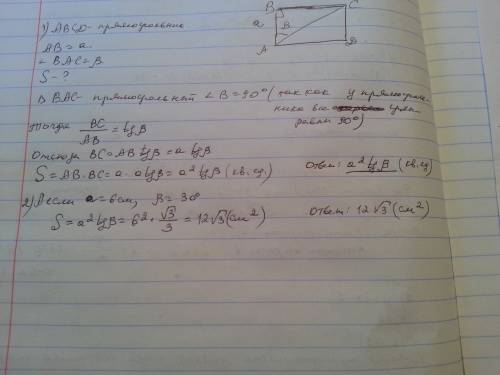 1) ABCD - прямоугольник
AB = a
∠BAC = β
S - ?
B C
a β
A D
Δ BAC - прямоугольный ∠B = 90° (так как у прямоуголь-
ника все углы
равны 90°)
Тогда BC/AB = tg β
Отсюда BC = AB tg β = a tg β
S = AB · BC = a · a tg β = a² tg β (кв. ед.) Ответ: a² tg β (кв. ед.)
2) если a = 6 см, β = 30
S = a² tg β = 6² · √3/3 = 12√3 (см²) Ответ: 12√3 (см²)